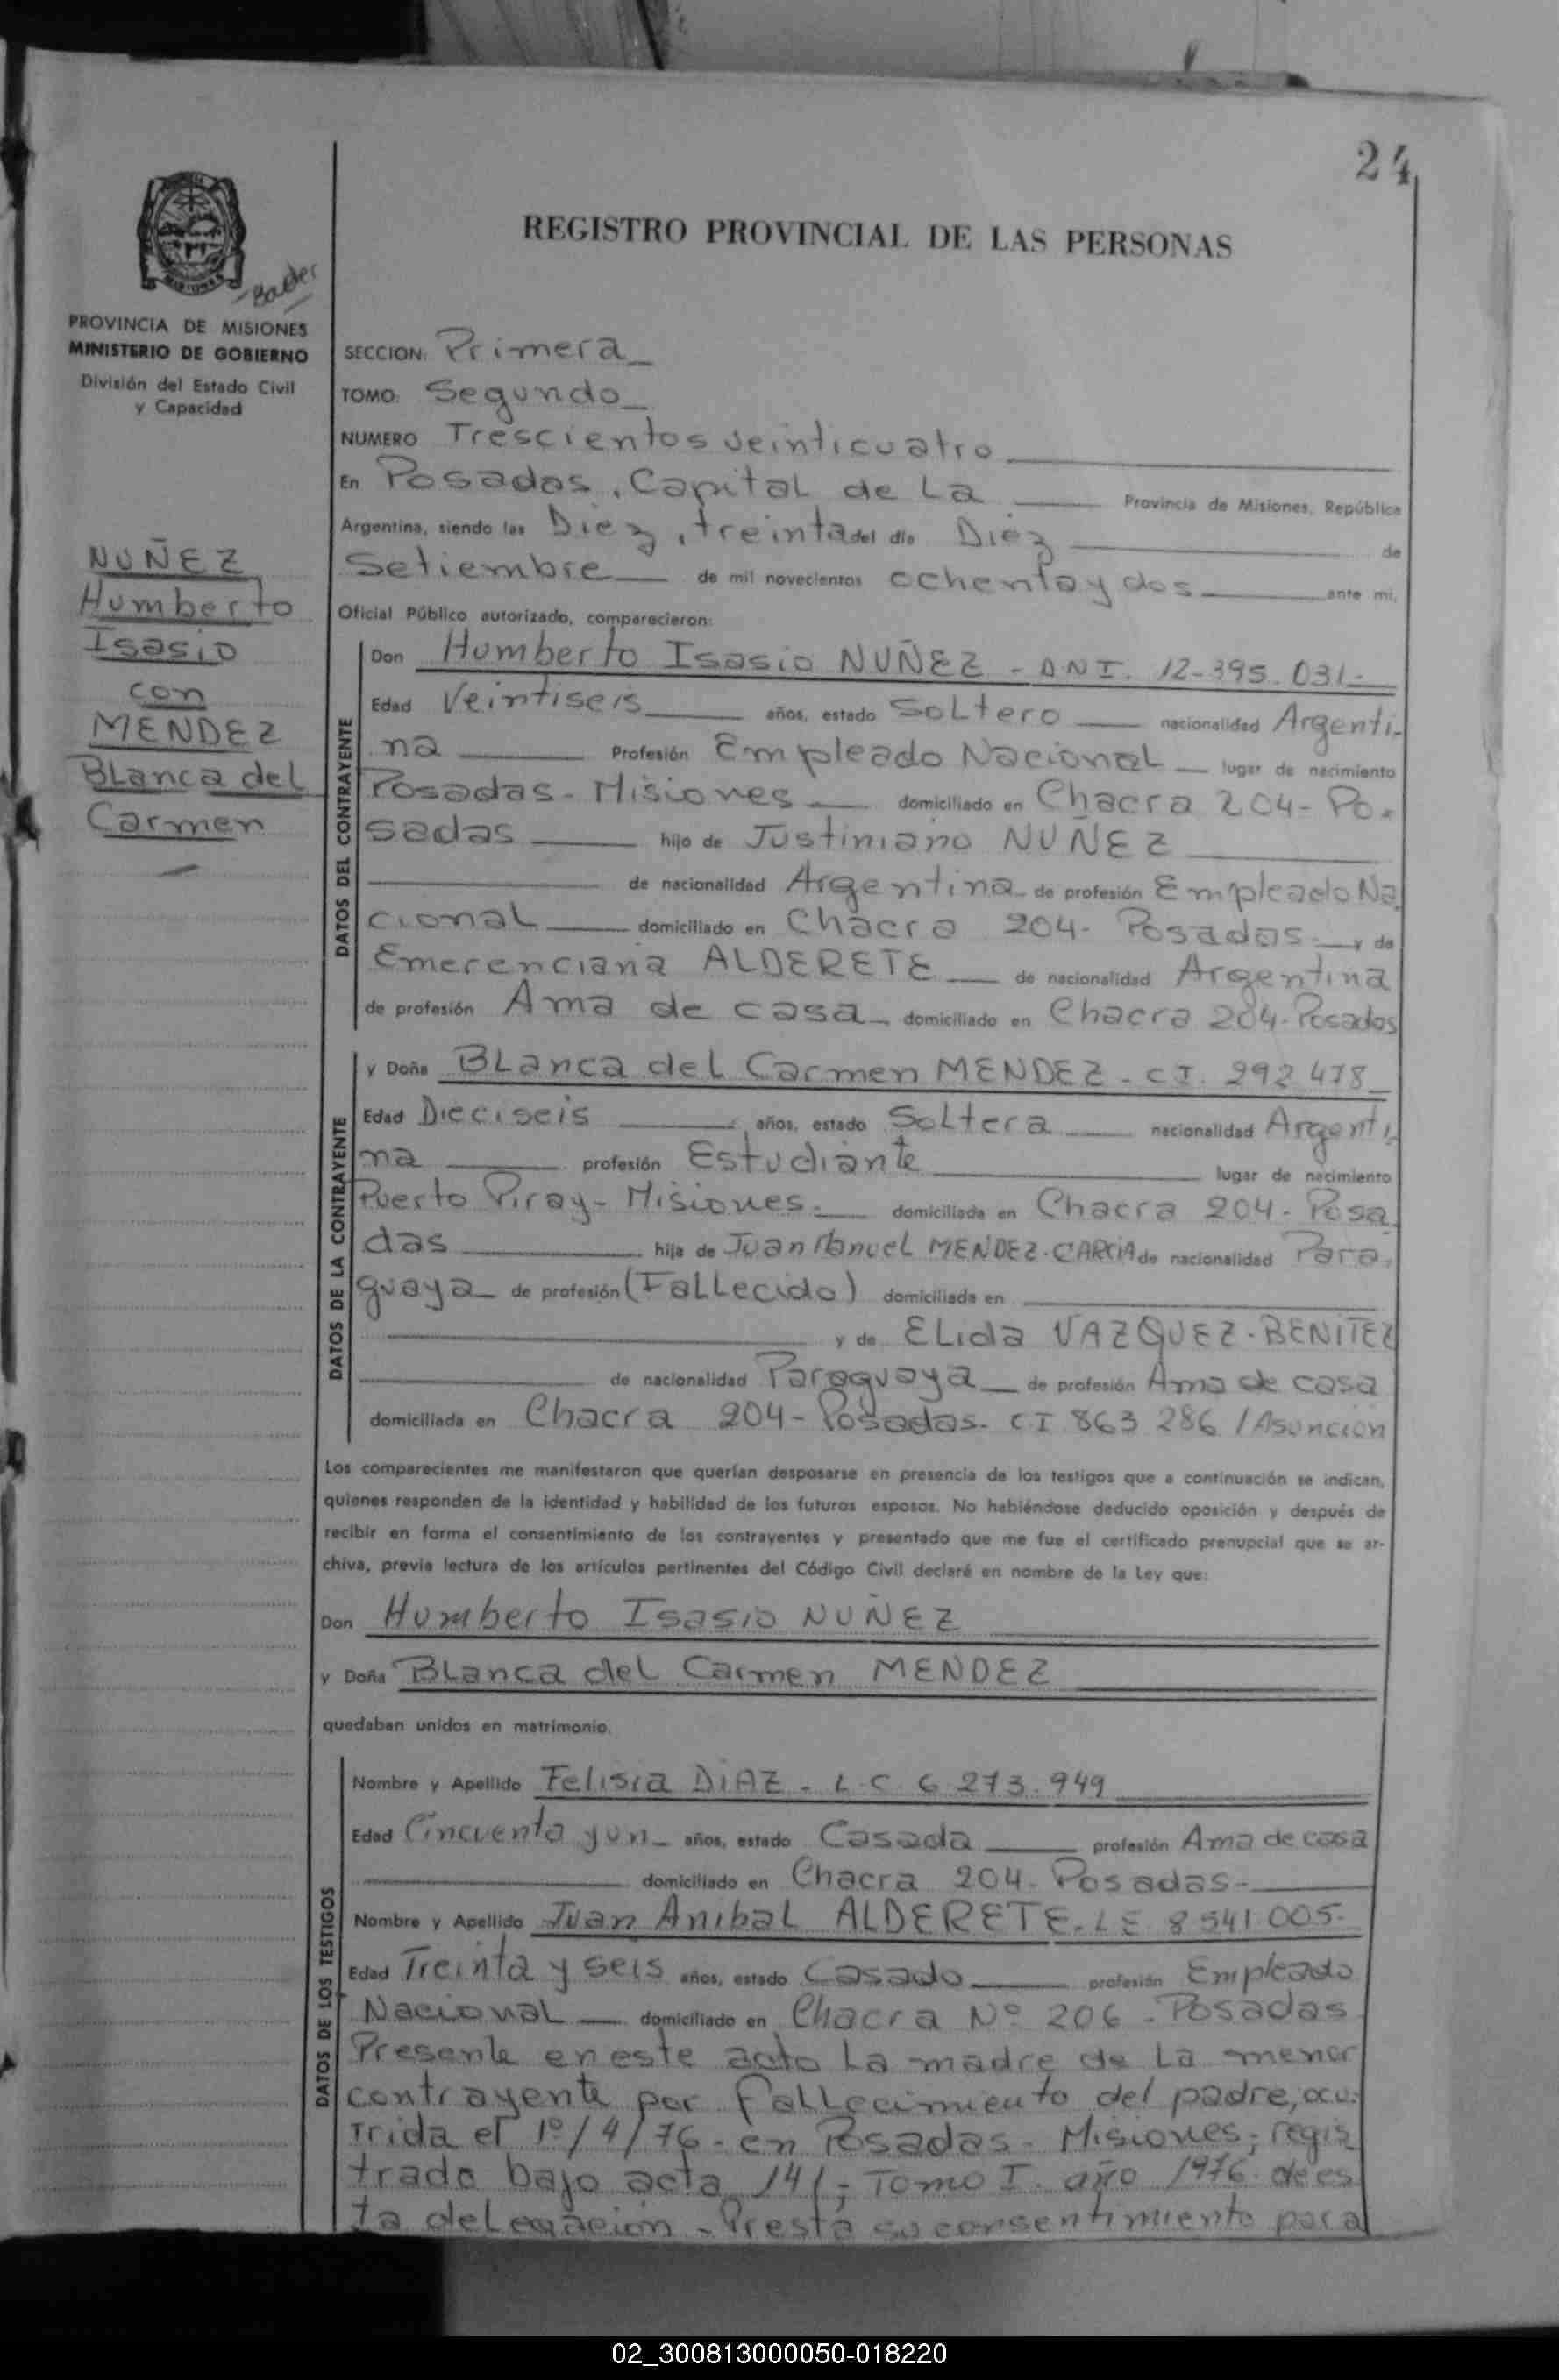 24
MISIONES
PROVINCIA DE MISIONES
MINISTERIO DE GOBIERNO
División del Estado Civil
y Capacidad
NUÑEZ
Humberto
Isasio
con
MENDEZ
Blanca del
Carmen
REGISTRO PROVINCIAL DE LAS PERSONAS
SECCION: Primera
TOMO: Segundo
NUMERO Trescientos veinticuatro
En Posadas, Capital de La Provincia de Misiones, República
Argentina, siendo las Diez, treinta del día Diez de
Setiembre de mil novecientos ochenta y dos ante mí,
Oficial Público autorizado, comparecieron:
DATOS DEL CONTRAYENTE
Don Humberto Isasio NUÑEZ - DNI. 12-395.031-
Edad Veintiseis años, estado Soltero nacionalidad Argenti-
na Profesión Empleado Nacional lugar de nacimiento
Posadas - Misiones domiciliado en Chacra 204 - Po-
sadas hijo de Justiniano NUÑEZ
de nacionalidad Argentina de profesión Empleado Na
cional domiciliado en Chacra 204 - Posadas - y de
Emerenciana ALDERETE de nacionalidad Argentina
de profesión Ama de casa domiciliado en Chacra 204 - Posadas
DATOS DE LA CONTRAYENTE
y Doña Blanca del Carmen MENDEZ - CI. 292 478
Edad Dieciseis años, estado Soltera nacionalidad Argenti
na profesión Estudiante lugar de nacimiento
Puerto Piray - Misiones - domiciliada en Chacra 204 - Posa
das hija de Juan Manuel MENDEZ - GARCIA de nacionalidad Para-
guaya de profesión (Fallecido) domiciliada en
y de Elida VAZQUEZ - BENITEZ
de nacionalidad Paraguaya de profesión Ama de casa
domiciliada en Chacra 204 - Posadas - CI 863 286 / Asunción
Los comparecientes me manifestaron que querían desposarse en presencia de los testigos que a continuación se indican,
quienes responden de la identidad y habilidad de los futuros esposos. No habiéndose deducido oposición y después de
recibir en forma el consentimiento de los contrayentes y presentado que me fue el certificado prenupcial que se ar-
chiva, previa lectura de los artículos pertinentes del Código Civil declaré en nombre de la Ley que:
Don Humberto Isasio NUÑEZ
y Doña Blanca del Carmen MENDEZ
quedaban unidos en matrimonio.
DATOS DE LOS TESTIGOS
Nombre y Apellido Felisia DIAZ - L.C 6 273.949
Edad Cincuenta y un años, estado Casada profesión Ama de casa
domiciliado en Chacra 204 - Posadas -
Nombre y Apellido Juan Anibal ALDERETE - LE 8 541.005-
Edad Treinta y seis años, estado Casado profesión Empleado
Nacional domiciliado en Chacra Nº 206 - Posadas
Presente en este acto La madre de La menor
contrayente por fallecimiento del padre, ocu-
rrida el 1º/4/76 - en Posadas - Misiones; regis
trado bajo acta 141; Tomo I. año 1976 de es
ta delegación - Presta su consentimiento para
02_300813000050-018220